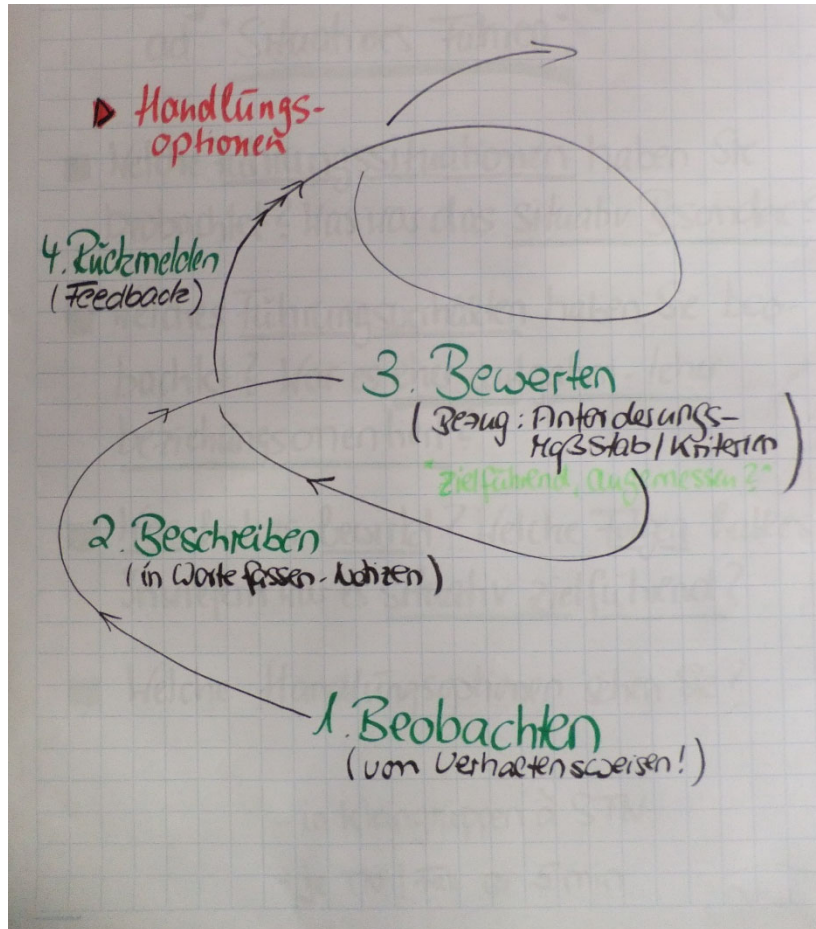 ▶ Handlungs-
optionen
4. Rückmelden
(Feedback)
3. Bewerten
(Bezug: Anforderungs-
Maßstab/Kriterien)
"zielführend, angemessen?"
2. Beschreiben
(in Worte fassen - Notizen)
1. Beobachten
(von Verhaltensweisen!)